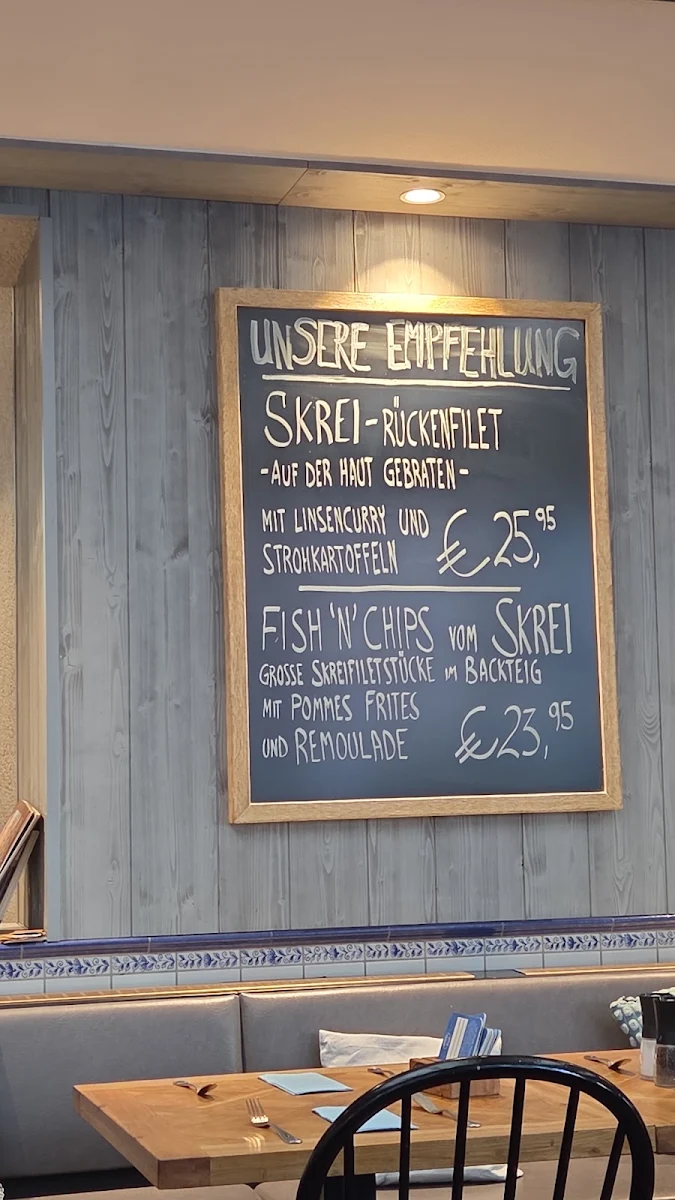 UNSERE EMPFEHLUNG
SKREI-RÜCKENFILET
-AUF DER HAUT GEBRATEN-
MIT LINSENCURRY UND
STROHKARTOFFELN €25,95
FISH 'N' CHIPS VOM SKREI
GROSSE SKREIFILETSTÜCKE IM BACKTEIG
MIT POMMES FRITES
UND REMOULADE €23,95